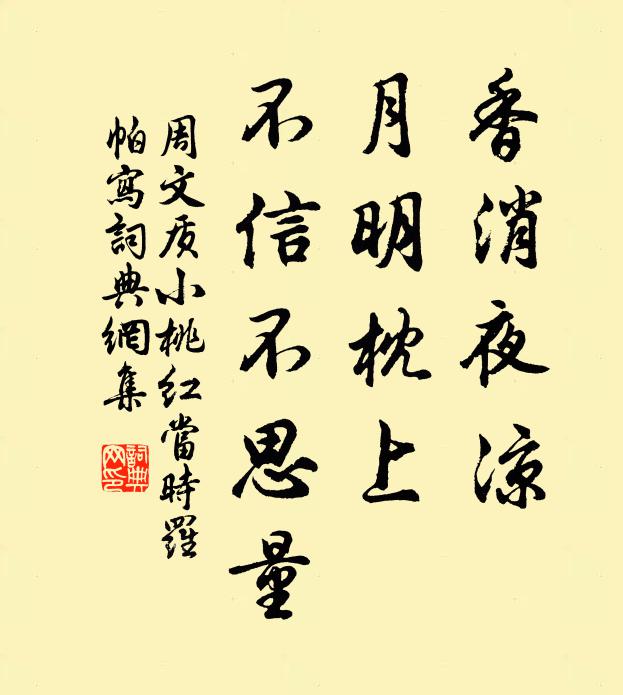 香消夜凉
月明枕上
不信不思量
周文质小桃红當時羅
帕寫詞典網集
詞典
网印